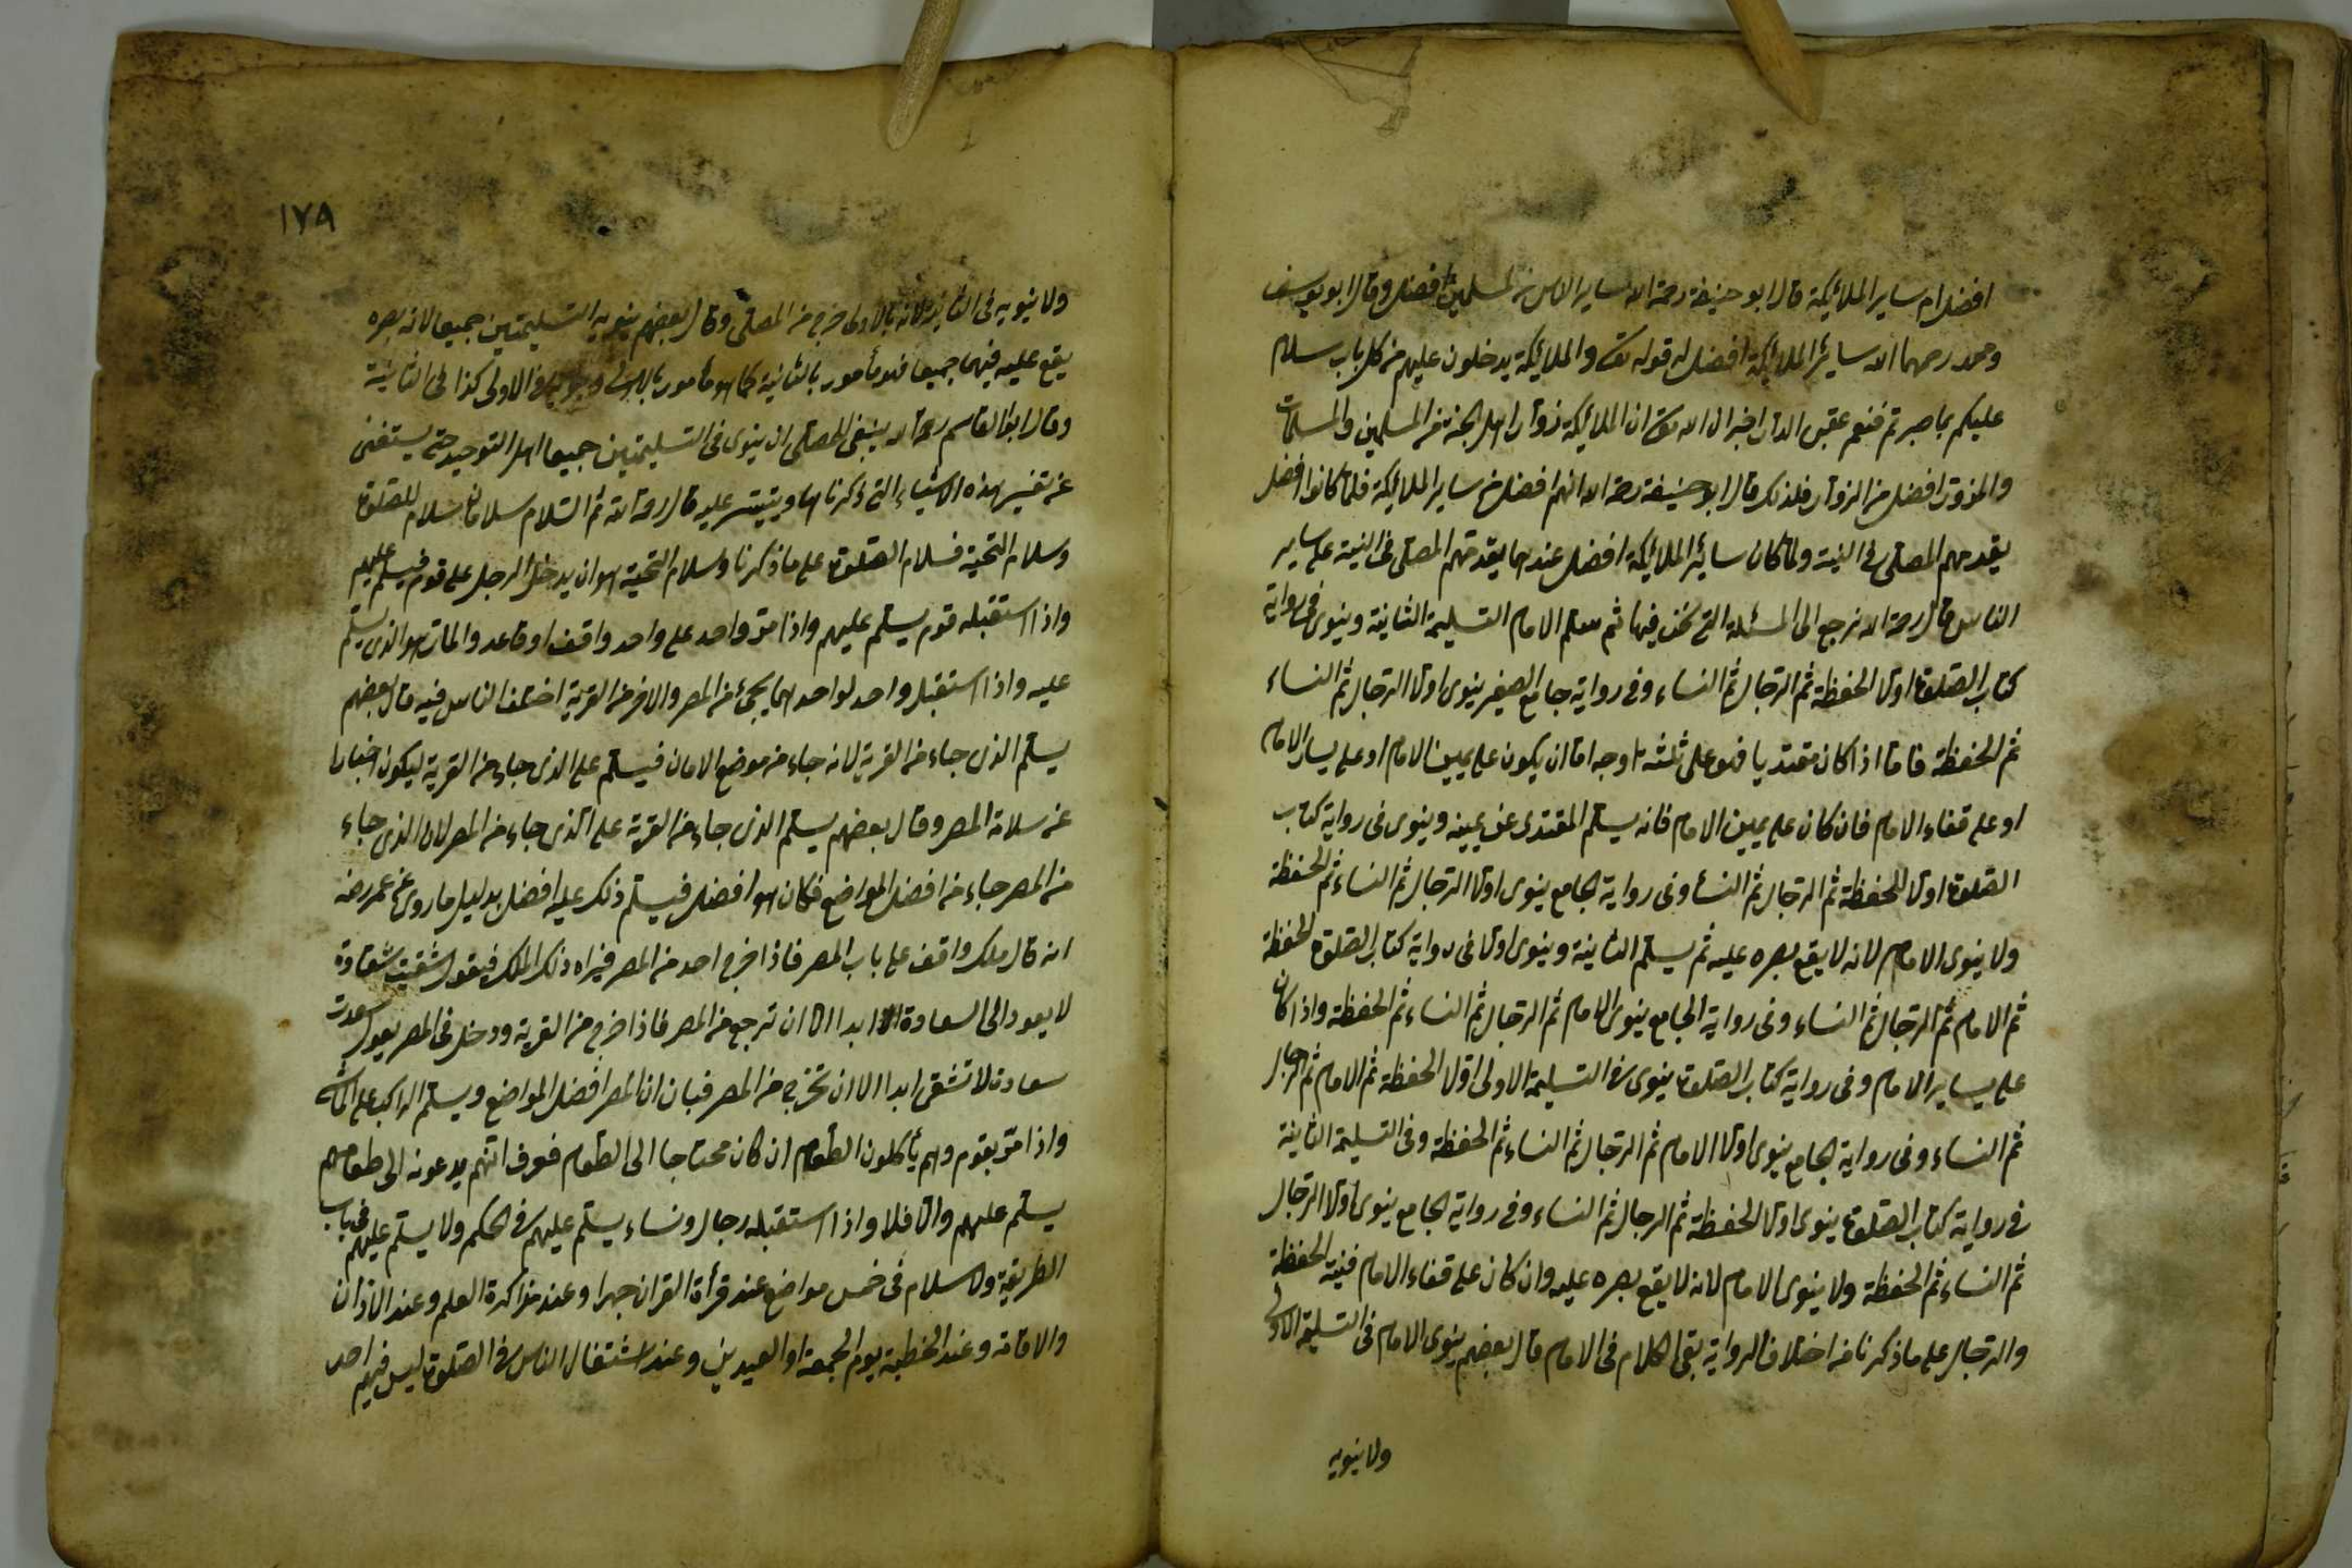 افضل ام ساير الملائكة قال ابو حنيفة رحمة الله ساير الناس من المسلمين افضل وقال ابو يوسف
ومحمد رحمهما الله سائر الملائكة افضل له قوله تعـ والملائكة يدخلون عليهم من كل باب سلام
عليكم بما صبرتم فنعم عقبى الدار اخبر ان الله تعـ ان الملائكة زوار اهل الجنة من المسلمين والمسلمات
والمزور افضل من الزوار فلذلك قال ابو حنيفة رحمة الله انهم افضل من ساير الملائكة فلما كانوا افضل
يقدمهم المصلى فى النية ولما كان سائر الملائكة افضل عندهما يقدمهم المصلى فى النية على ساير
الناس قال رحمة الله نرجع الى المسئلة التى نحن فيها ثم يسلم الامام التسليمة الثانية وينوى فى رواية
كتاب الصلوة اولا الحفظة ثم الرجال ثم النساء وفى رواية جامع الصغير ينوى اولا الرجال ثم النساء
ثم الحفظة فاما اذا كان مقتديا فهو على ثلثة اوجه اما ان يكون على يمين الامام او على يسار الامام
او على قفاء الامام فان كان على يمين الامام فانه يسلم المقتدى عن يمينه وينوى فى رواية كتاب
الصلوة اولا للحفظة ثم الرجال ثم النسا وفى رواية الجامع ينوى اولا الرجال ثم النساء ثم الحفظة
ولا ينوى الامام لانه لا يقع بصره عليه ثم يسلم الثانية وينوى اولا فى رواية كتاب الصلوة الحفظة
ثم الامام ثم الرجال ثم النساء وفى رواية الجامع ينوى الامام ثم الرجال ثم النساء ثم الحفظة واذا كان
على يسار الامام وفى رواية كتاب الصلوة ينوى فى التسليمة الاولى اولا الحفظة ثم الامام ثم الرجال
ثم النساء وفى رواية الجامع ينوى اولا الامام ثم الرجال ثم النساء ثم الحفظة وفى التسليمة الثانية
فى رواية كتاب الصلوة ينوى اولا الحفظة ثم الرجال ثم النساء وفى رواية الجامع ينوى اولا الرجال
ثم النساء ثم الحفظة ولا ينوى الامام لانه لا يقع بصره عليه وان كان على قفاء الامام فنية الحفظة
والرجال على ما ذكرنا من اختلاف الرواية بقى الكلام فى الامام قال بعضهم ينوى الامام فى التسليمة الاولى
ولا ينويه
١٧٨
ولا ينويه فى الثانية لانه بالاولى خرج من المصلى وقال بعضهم ينويه التسليمتين جميعا لانه بصره
يقع عليه فيهما جميعا فهو مأمور بالثانية كما هو مأمور بالاولى الاولى كذا فى الثانية
وقال ابو القاسم رحمة الله ينبغى للمصلى ان ينوى فى التسليمتين جميعا اهل التوحيد حتى يستغنى
عن تفسير هذه الاشياء التى ذكرناها ويتيسر عليه قال رحمة الله ثم السلام سلامان سلام للصلوة
وسلام التحية فسلام الصلوة على ما ذكرنا وسلام التحية هو ان يدخل الرجل على قوم فيسلم عليهم
واذا استقبله قوم يسلم عليهم واذا مر واحد على واحد واقف او قاعد والمار هو الذى يسلم
عليه واذا استقبل واحد لواحد احدهما يجئ من المصر والاخر من القرية اختلف الناس فيه قال بعضهم
يسلم الذى جاء من القرية لانه جاء من موضع الامان فيسلم على الذى جاء من القرية ليكون اخبارا
عن سلامة المصر وقال بعضهم يسلم الذى جاء من القرية على الذى جاء من المصر لان الذى جاء
من المصر جاء من افضل المواضع فكان هو افضل فيسلم ذلك عليه افضل بدليل ما روى عن عمر رضه
انه قال ملك واقف على باب المصر فاذا خرج احد من المصر فيراه ذلك الملك فيقول شقيت شقاوة
لا يعود الى السعادة ابدا الا ان ترجع من المصر فاذا خرج من القرية ودخل فى المصر يقول سعدت
سعادة لا تشقى ابدا الا ان تخرج من المصر فبان ان المصر افضل المواضع ويسلم الراكب على الماشى
واذا مر بقوم وهم يأكلون الطعام ان كان محتاجا الى الطعام فعرف انهم يدعونه الى طعامهم
يسلم عليهم والا فلا واذا استقبله رجال ونساء يسلم عليهم فى الحكم ولا يسلم عليهم فى باب
الطريقة ولا سلام فى خمس مواضع عند قرأة القران جهرا وعند مذاكرة العلم وعند الاذان
والاقامة وعند الخطبة يوم الجمعة او العيدين وعند اشتغال الناس فى الصلوة ليس فيهم احد